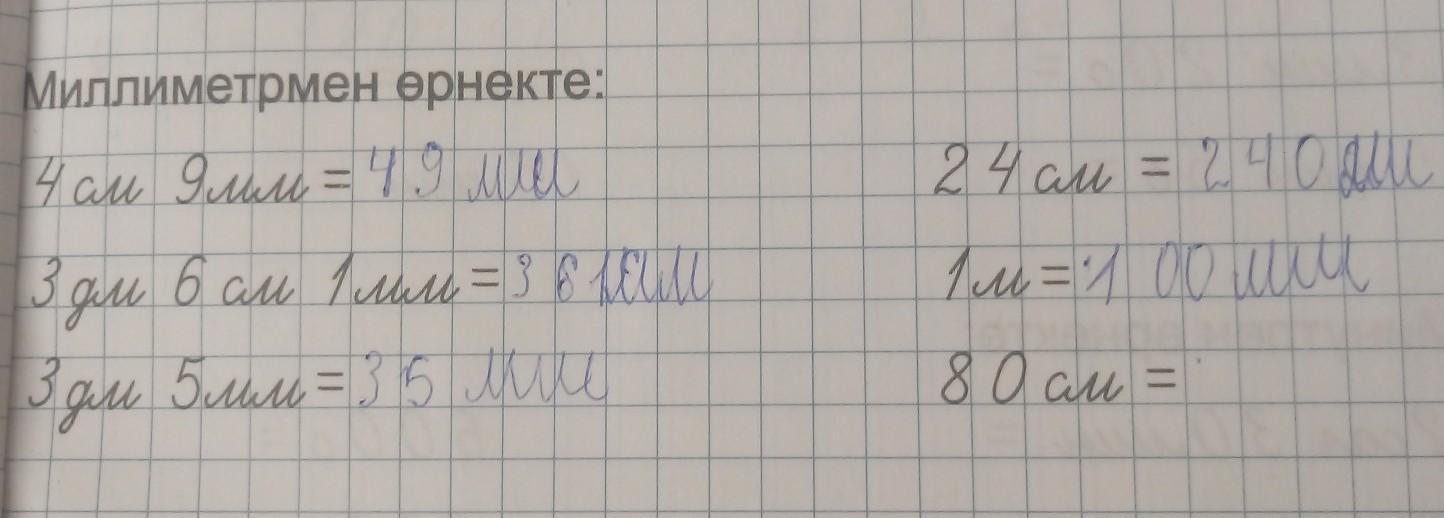 Миллиметрмен өрнекте:
4 см 9 мм = 49 мм 24 см = 240 мм
3 дм 6 см 1 мм = 361 мм 1 м = 100 мм
3 дм 5 мм = 35 мм 80 см =